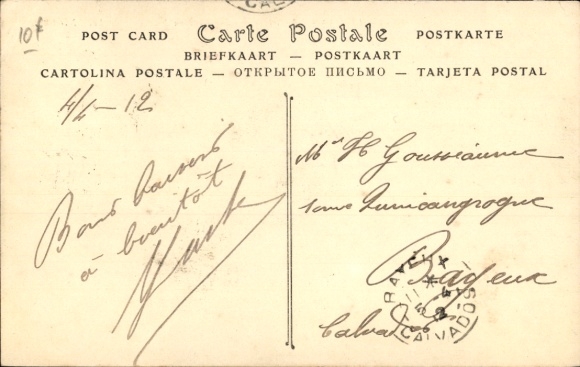 10f
POST CARD Carte Postale POSTKARTE
BRIEFKAART — POSTKAART
CARTOLINA POSTALE — ОТКРЫТОЕ ПИСЬМО — TARJETA POSTAL
4/4 - 12
Bons baisers
à bientôt
Mr H
Bayeux
Calvados
BAYEUX
CALVADOS